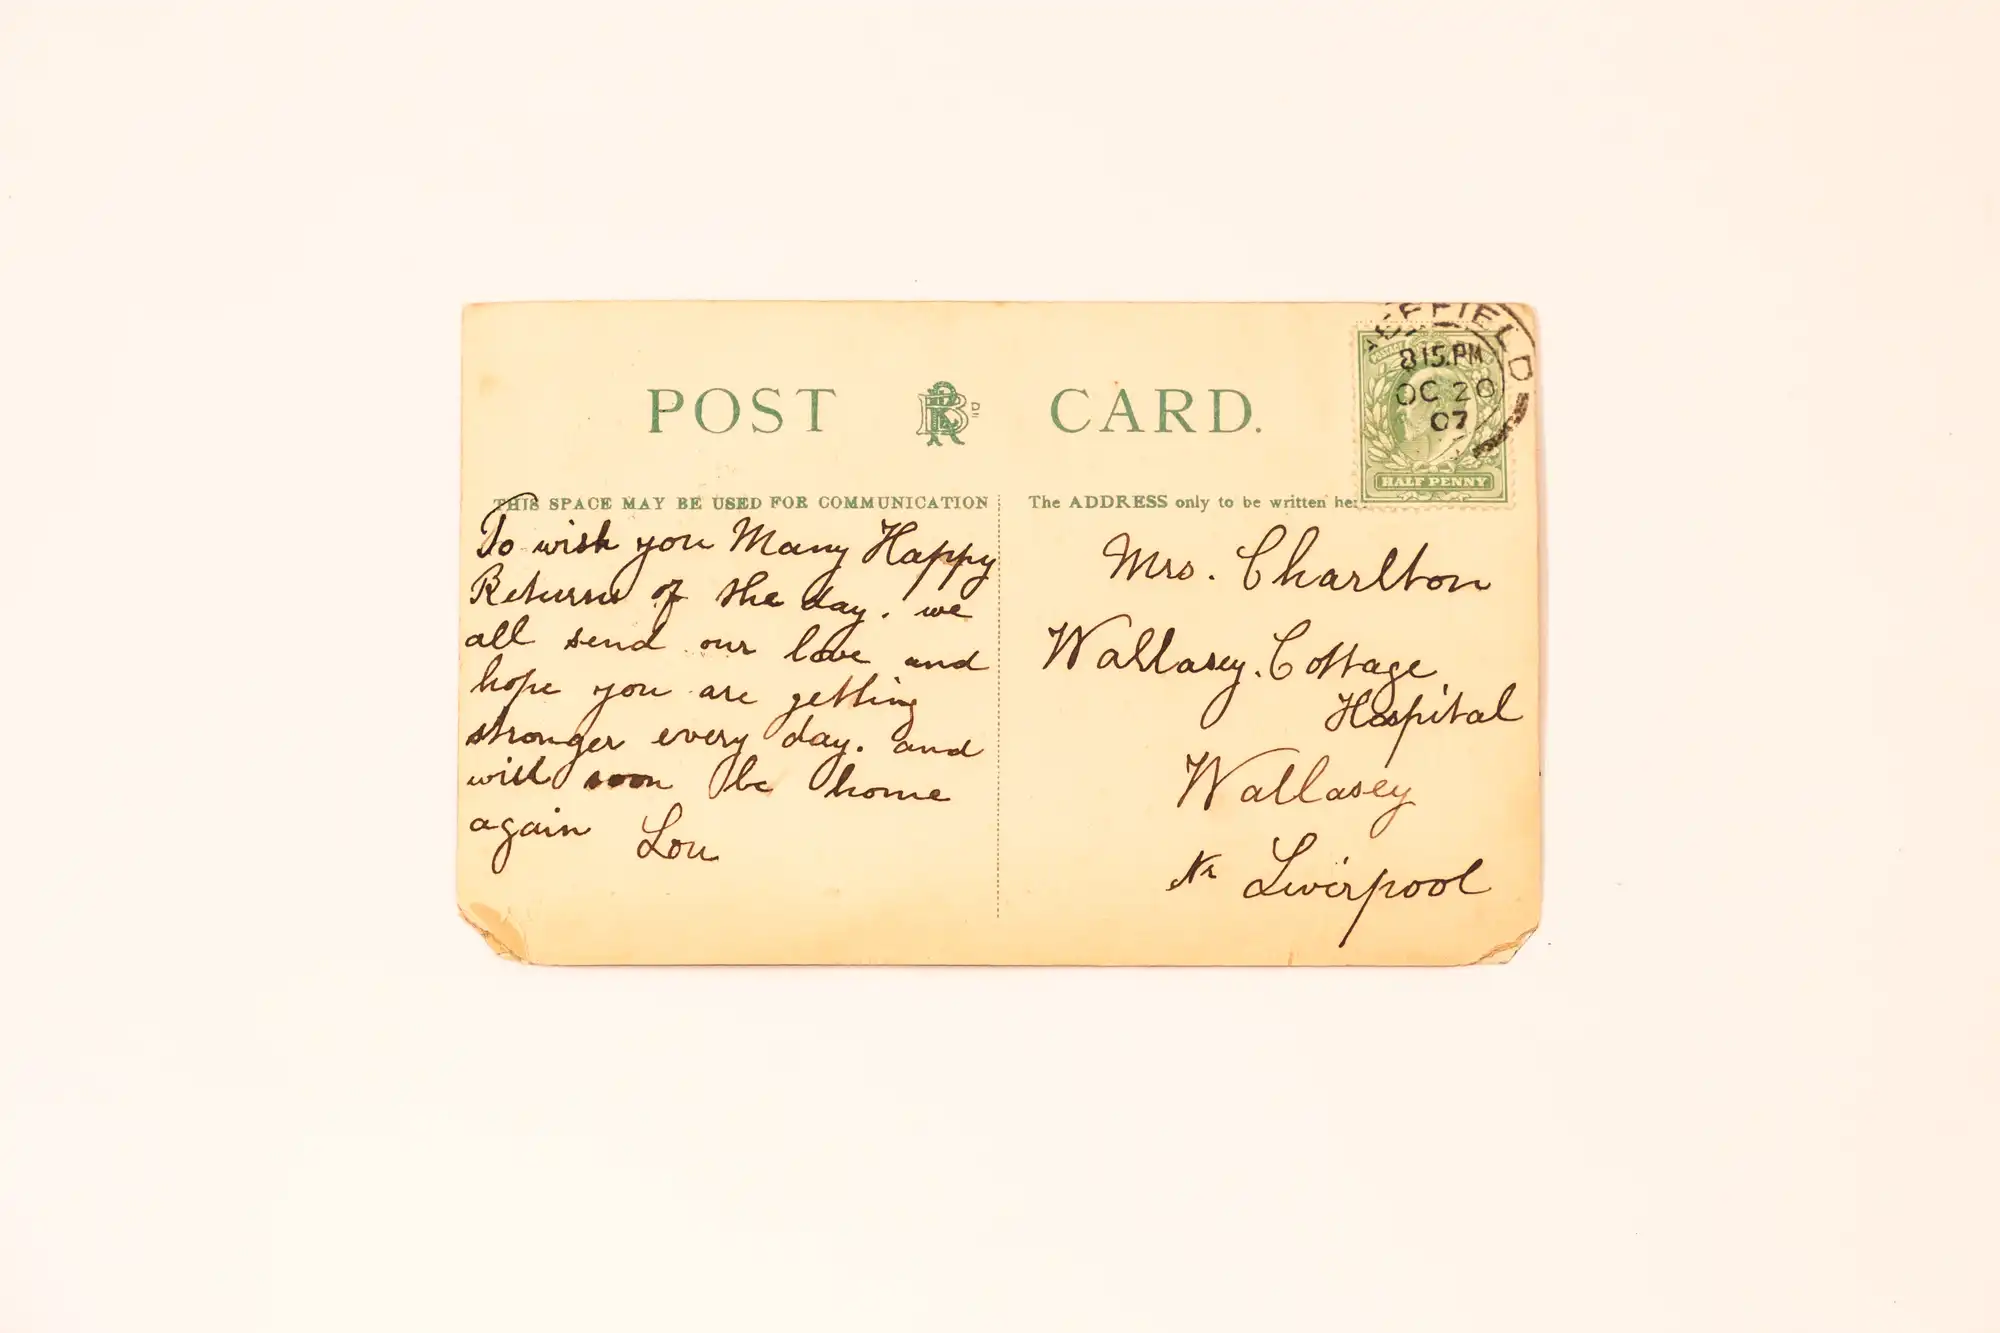 POST CARD.
THIS SPACE MAY BE USED FOR COMMUNICATION
To wish you Many Happy
Returns of the day. we
all send our love and
hope you are getting
stronger every day. and
will soon be home
again Lou
The ADDRESS only to be written
Mrs. Charlton
Wallasey. Cottage
Hospital
Wallasey
Nr Liverpool
EFFIELD
8 15.PM
OC 20
07
HALF PENNY